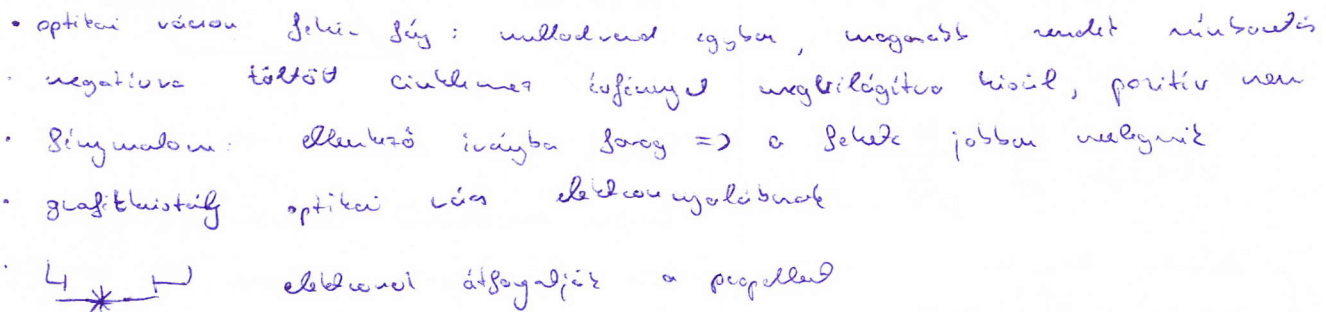 • optikai rácson fehér fény: nulladrend egyben, magasabb rendek színbontás
• negatívra töltött cinklemez ívfénnyel megvilágítva kisül, pozitív nem
• fénymalom: ellenkező irányba forog => a fekete jobban melegszik
• grafitkristály optikai rács elektronnyalábnak
• elektronok átforgatják a propellert